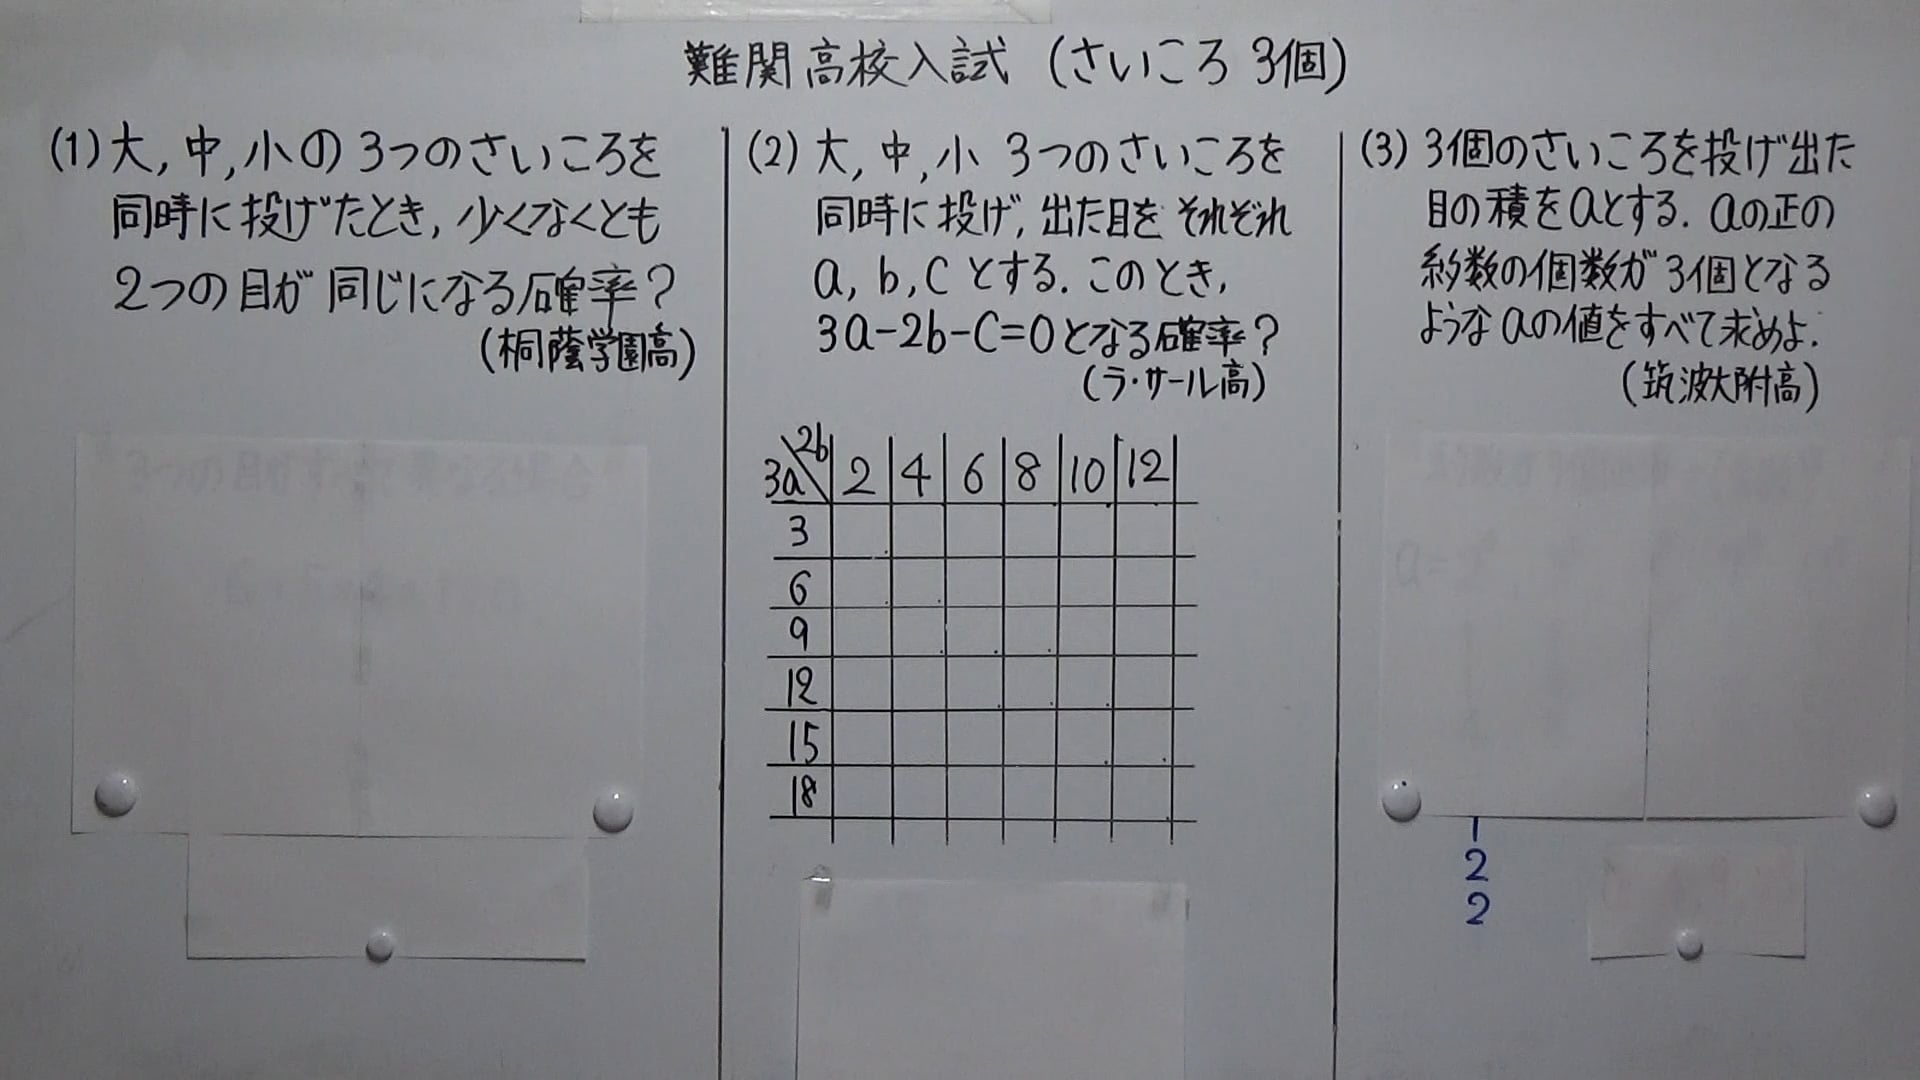 難関高校入試 (さいころ 3個)
(1) 大, 中, 小の 3つのさいころを
同時に投げたとき, 少くなくとも
2つの目が 同じになる確率?
(桐蔭学園高)
(2) 大, 中, 小 3つのさいころを
同時に投げ, 出た目を それぞれ
a, b, c とする. このとき,
3a-2b-c=0となる確率?
(ラ・サール高)
3a 2b 2 4 6 8 10 12
3
6
9
12
15
18
(3) 3個のさいころを投げ出た
目の積をaとする. aの正の
約数の個数が 3個となる
ようなaの値をすべて求めよ.
(筑波大附高)
1
2
2